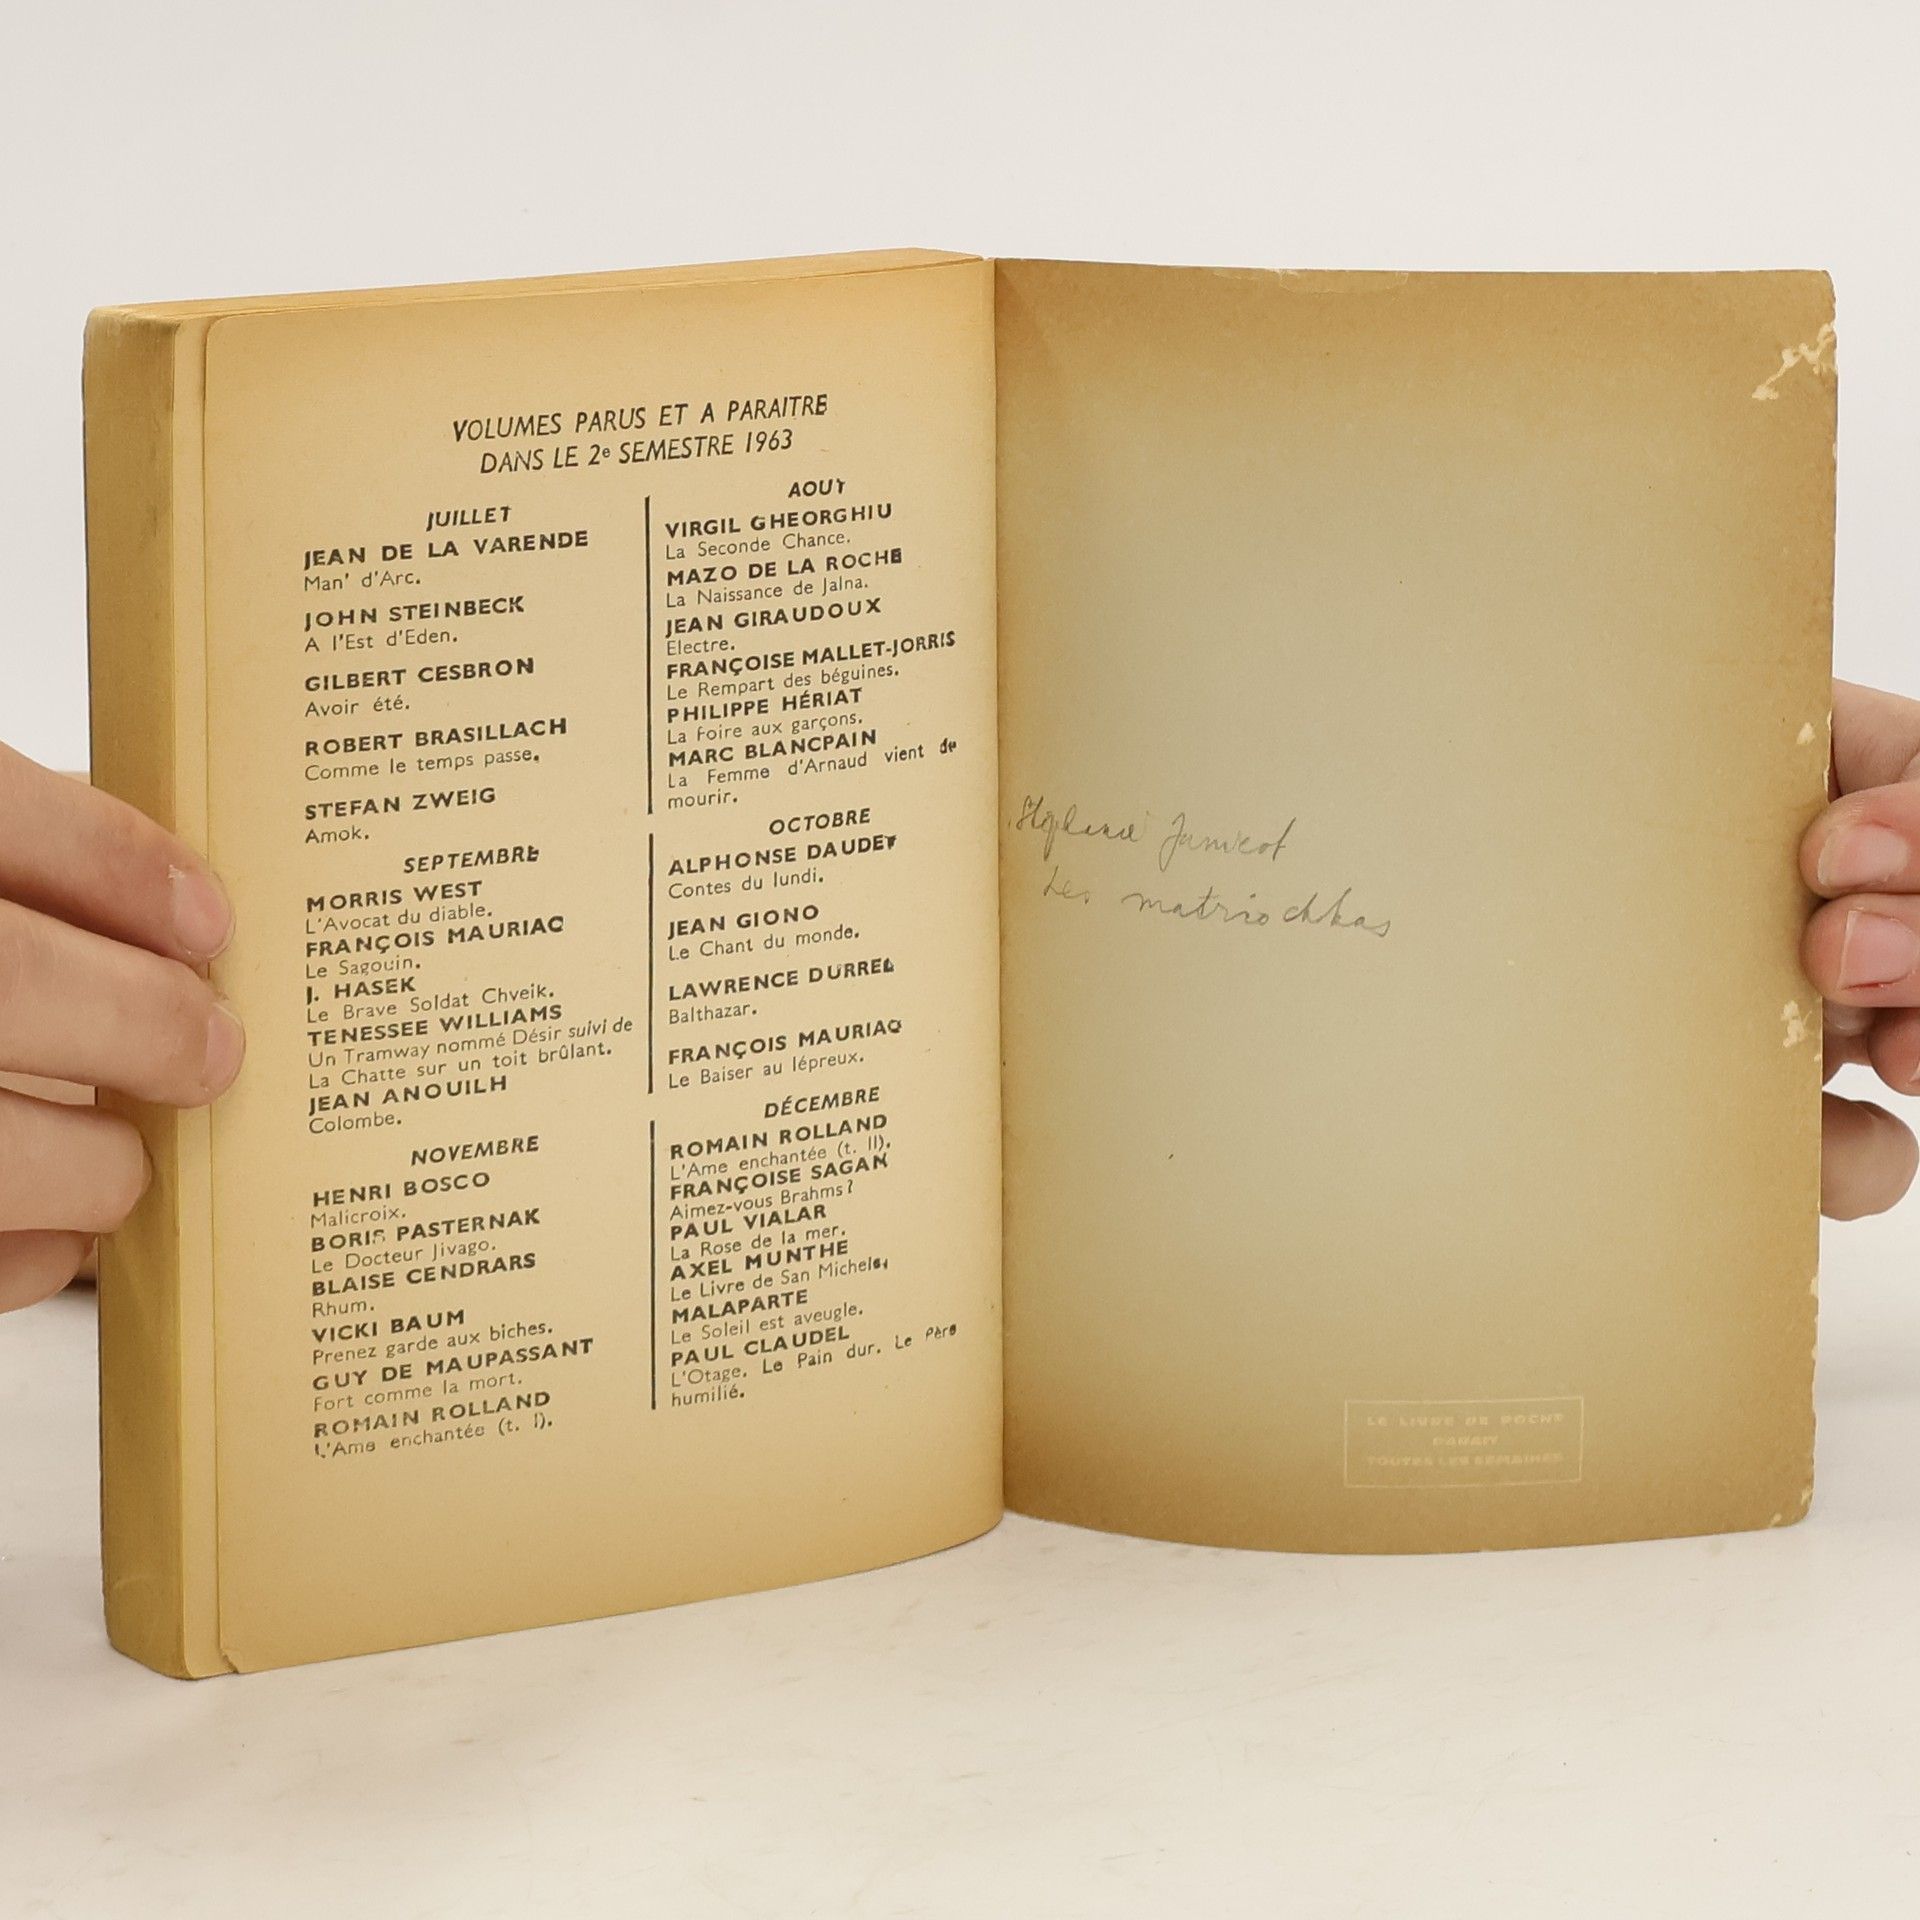 VOLUMES PARUS ET A PARAITRE
DANS LE 2e SEMESTRE 1963
JUILLET
JEAN DE LA VARENDE
Man' d'Arc.
JOHN STEINBECK
A l'Est d'Eden.
GILBERT CESBRON
Avoir été.
ROBERT BRASILLACH
Comme le temps passe.
STEFAN ZWEIG
Amok.
AOUT
VIRGIL GHEORGHIU
La Seconde Chance.
MAZO DE LA ROCHE
La Naissance de Jalna.
JEAN GIRAUDOUX
Electre.
FRANÇOISE MALLET-JORRIS
Le Rempart des béguines.
PHILIPPE HÉRIAT
La foire aux garçons.
MARC BLANCPAIN
La Femme d'Arnaud vient de
mourir.
SEPTEMBRE
MORRIS WEST
L'Avocat du diable.
FRANÇOIS MAURIAC
Le Sagouin.
J. HASEK
Le Brave Soldat Chveik.
TENESSEE WILLIAMS
Un Tramway nommé Désir suivi de
La Chatte sur un toit brûlant.
JEAN ANOUILH
Colombe.
OCTOBRE
ALPHONSE DAUDET
Contes du lundi.
JEAN GIONO
Le Chant du monde.
LAWRENCE DURREL
Balthazar.
FRANÇOIS MAURIAC
Le Baiser au lépreux.
NOVEMBRE
HENRI BOSCO
Malicroix.
BORIS PASTERNAK
Le Docteur Jivago.
BLAISE CENDRARS
Rhum.
VICKI BAUM
Prenez garde aux biches.
GUY DE MAUPASSANT
Fort comme la mort.
ROMAIN ROLLAND
L'Ame enchantée (t. I).
DÉCEMBRE
ROMAIN ROLLAND
L'Ame enchantée (t. II).
FRANÇOISE SAGAN
Aimez-vous Brahms?
PAUL VIALAR
La Rose de la mer.
AXEL MUNTHE
Le Livre de San Michele.
MALAPARTE
Le Soleil est aveugle.
PAUL CLAUDEL
L'Otage. Le Pain dur. Le Père
humilié.
Janicot
Les matriochkas
LE LIVRE DE POCHE
PARAIT
TOUTES LES SEMAINES